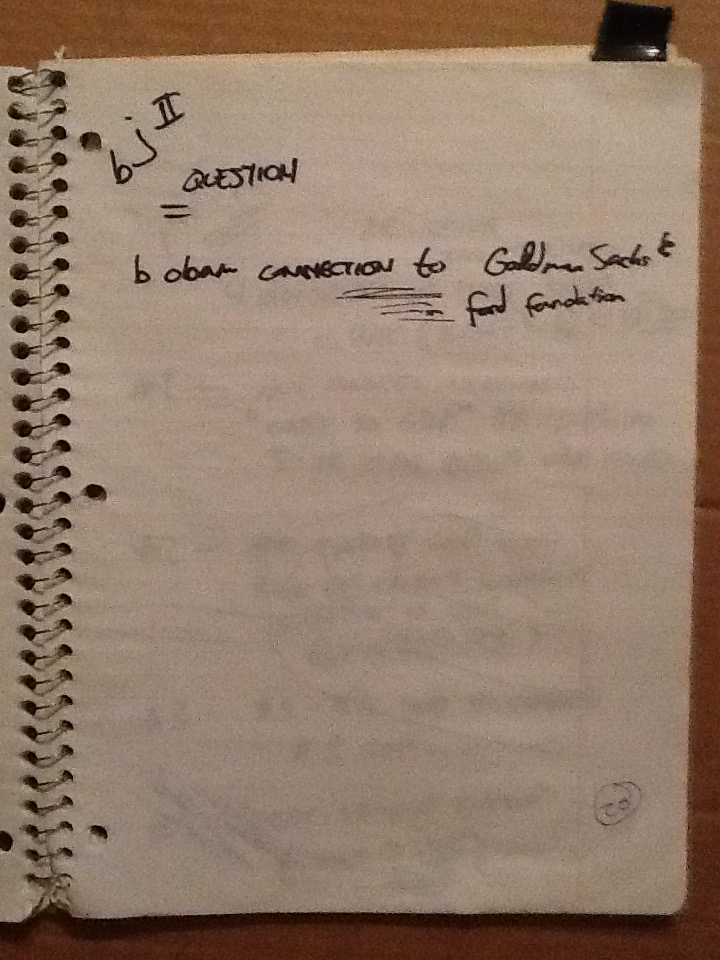 bj II
QUESTION
=
b obam CONNECTION to Goldman Sachs &
ford foundation
20